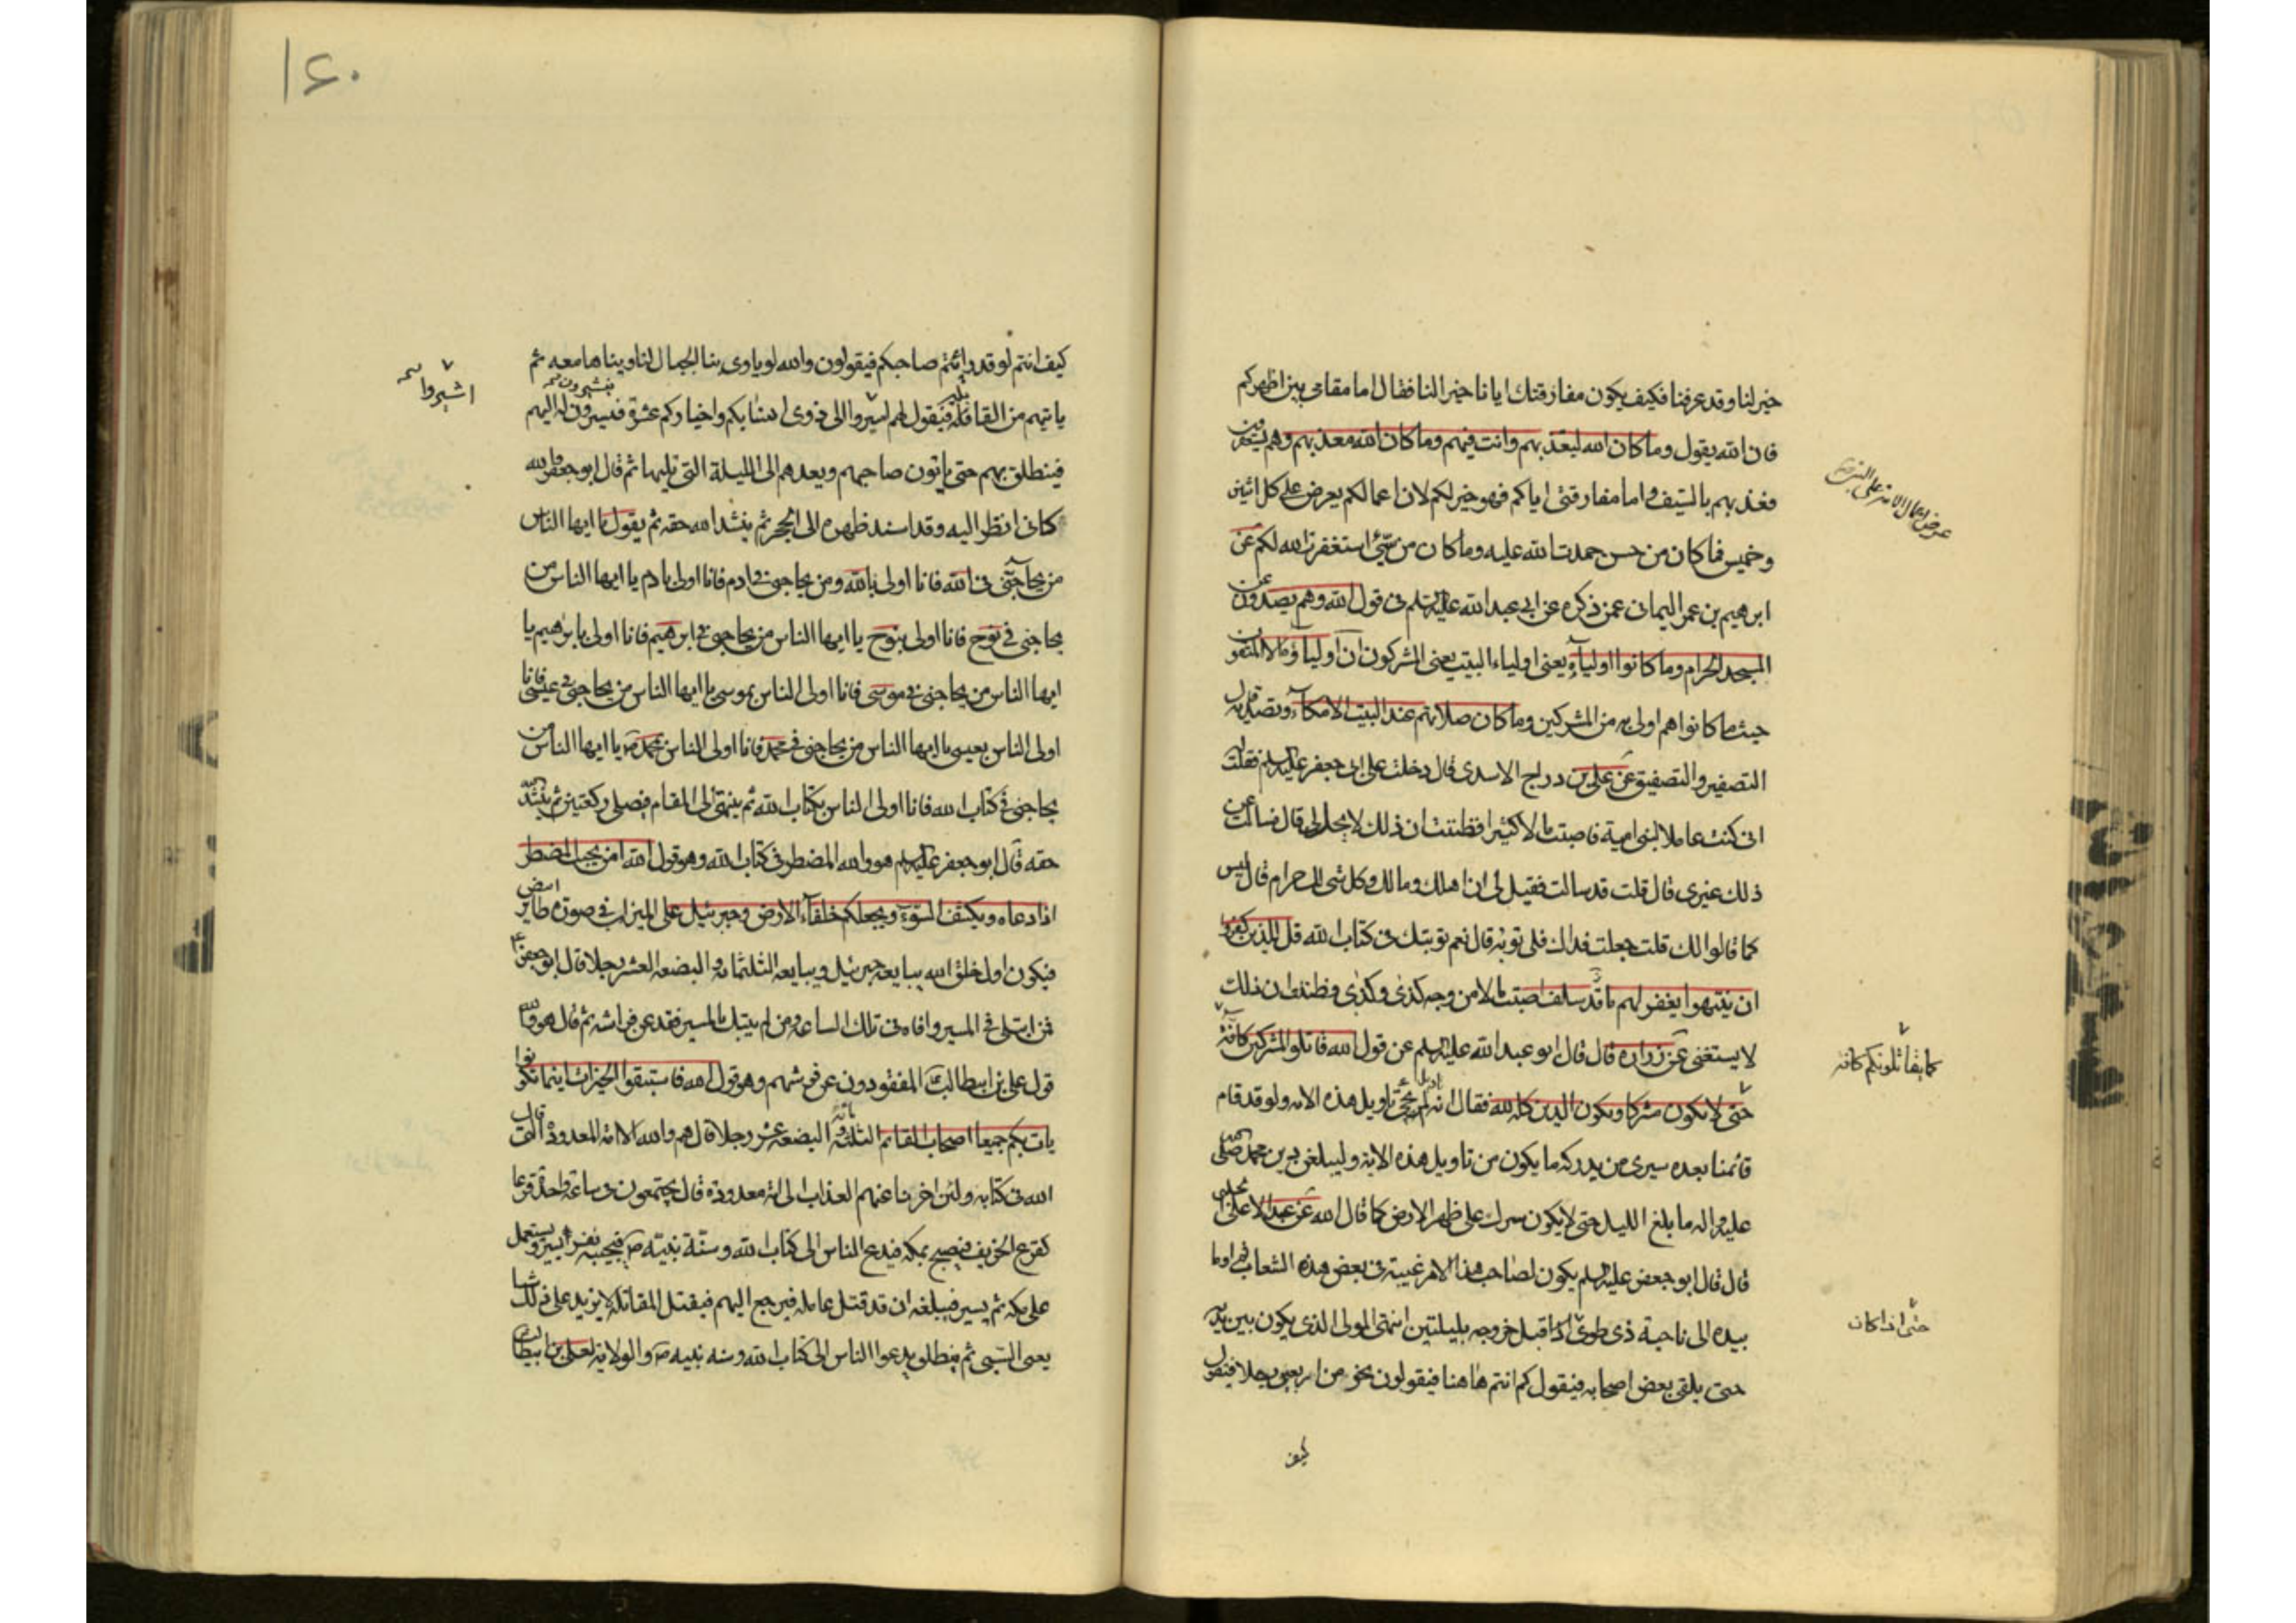 خير لنا وقد عرفنا فكيف يكون مفارقتك ايانا خير النا فقال اما مقامى بين اظهركم
فان الله يقول وما كان الله ليعذبهم وانت فيهم وما كان الله معذبهم وهم يستغفرون
فعذبهم بالسيف واما مفارقتى اياكم فهو خير لكم لان اعمالكم يعرض على كل اثنين
عرض اعمال الامة على النبى
وخميس فما كان من حسن حمدت الله عليه وما كان من سيئ استغفرت الله لكم عن
ابرهيم بن عمر اليمانى عمن ذكره عن ابى عبد الله عليه السلم فى قول الله وهم يصدون عن
المسجد الحرام وما كانوا اولياءه يعنى اولياء البيت يعنى المشركون ان اولياؤه الا المتقون
حيث ما كانوا هم اولى به من المشركين وما كان صلاتهم عند البيت الا مكاء وتصدية قال
التصفير والتصفيق عن على بن دراج الاسدى قال دخلت على ابى جعفر عليه السلم فقلت له
انى كنت عاملا لبنى امية فاصبت مالا كثيرا فظننت ان ذلك لا يحل لى قال فسالت عن
ذلك غيرى قال قلت قد سالت فقيل لى ان اهلك ومالك وكل شى لك حرام قال ليس
كما قالوا لك قلت جعلت فداك فلى توبة قال نعم توبتك فى كتاب الله قل للذين كفروا
ان ينتهوا يغفر لهم ما قد سلف اصبت مالا من وجه كذى وكذى وظننت ان ذلك
لا يستغنى عن زراره قال قال ابو عبد الله عليه السلم عن قول الله قاتلو المشركين كافة
كما يقاتلونكم كافة
حتى لا يكون مشركا ويكون الدين كله لله فقال انه لم يجئ تاويل هذه الاية ولو قد قام
قائمنا بعده سيرى من يدركه ما يكون من تاويل هذه الاية وليبلغن دين محمد صلى الله
عليه واله ما بلغ الليل حتى لا يكون شرك على ظهر الارض كما قال الله عن عبد الاعلى الحلبى
قال قال ابو جعفر عليه السلم يكون لصاحب هذا الامر غيبة فى بعض هذه الشعاب ثم اوما
بيده الى ناحية ذى طوى قبل خروجه بليلتين انتهى المولى الذى يكون بين يديه
حتى اذا كان
حتى يلقى بعض اصحابه فيقول كم انتم هاهنا فيقولون نحو من اربعين رجلا فيقول
كيف
١٤٠
كيف انتم لو قد رائتم صاحبكم فيقولون والله لو ياوى بنا الجبال لناويناها معه ثم
ياتيهم من القابلة فيقول لهم اسيروا الى ذوى اسنابكم واخياركم عشرة فيسيرون له اليهم
اشيروا
فينطلق بهم حتى ياتون صاحبهم ويعدهم الى الليلة التى تليها ثم قال ابو جعفر والله
كانى انظر اليه وقد اسند ظهره الى الحجر ثم ينشد الله حقه ثم يقول يا ايها الناس
من يحاجنى فى الله فانا اولى بالله ومن يحاجنى فى ادم فانا اولى بادم يا ايها الناس من
يحاجنى فى نوح فانا اولى بنوح يا ايها الناس من يحاجنى فى ابرهيم فانا اولى بابرهيم يا
ايها الناس من يحاجنى فى موسى فانا اولى الناس بموسى يا ايها الناس من يحاجنى فى عيسى فانا
اولى الناس بعيسى يا ايها الناس من يحاجنى فى محمد فانا اولى الناس بمحمد ص يا ايها الناس من
يحاجنى فى كتاب الله فانا اولى الناس بكتاب الله ثم ينتهى الى المقام فيصلى ركعتين ثم ينشد الله
حقه قال ابو جعفر عليه السلم هو والله المضطر فى كتاب الله وهو قول الله امن يجيب المضطر
اذا دعاه ويكشف السوء ويجعلكم خلفاء الارض وجبرئيل على الميزاب فى صورة طاير ابيض
فيكون اول خلق الله يبايعه جبرئيل ويبايعه الثلثمائة والبضعه العشر رجلا قال ابو جعفر ع
فمن ابتلى فى المسير وافاه فى تلك الساعة ومن لم يبتك بالمسير فقد عن فراشه ثم قال هو والله
قول على بن ابيطالب ع المفقودون عن فرشهم وهو قول الله فاستبقوا الخيرات اينما تكونوا
يات بكم جميعا اصحاب القائم الثلثمائة والبضعه عشر رجلا قال هم والله الامة المعدودة التى قال
الله فى كتابه ولئن اخرنا عنهم العذاب الى امة معدودة قال يجتمعون فى ساعة واحدة قزعا
كقزع الخريف فيصبح بمكه فيدع الناس الى كتاب الله وسنة نبيه ص فيجيبه نفر يسير ويستعمل
على مكه ثم يسير فيبلغه ان قد قتل عامله فيرجع اليهم فيقتل المقاتلة لا يزيد على ذلك شيا
يعنى السبى ثم ينطلق يدعوا الناس الى كتاب الله وسنه نبيه ص والولاية لعلى بن ابيطالب